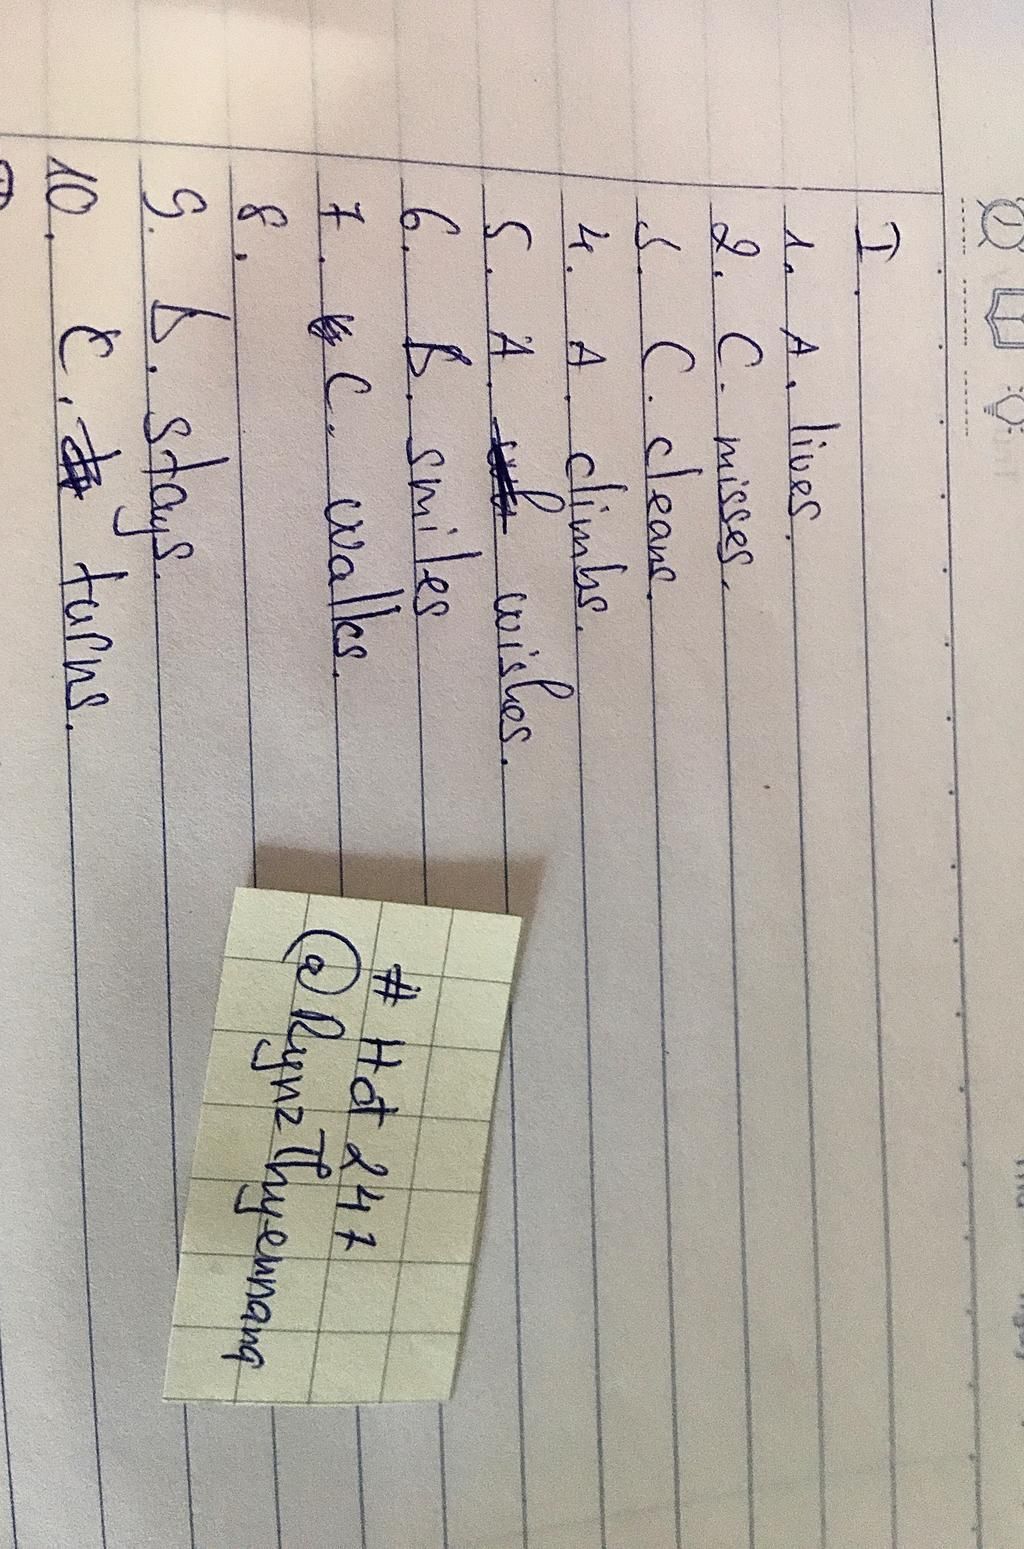 I.
1. A. lives.
2. C. misses.
3. C. cleans.
4. A. climbs.
5. A. wishes.
6. B. smiles
7. C. walks.
8.
9. B. stays.
10. C. turns.
# Hđ 247
@RynzThyennang